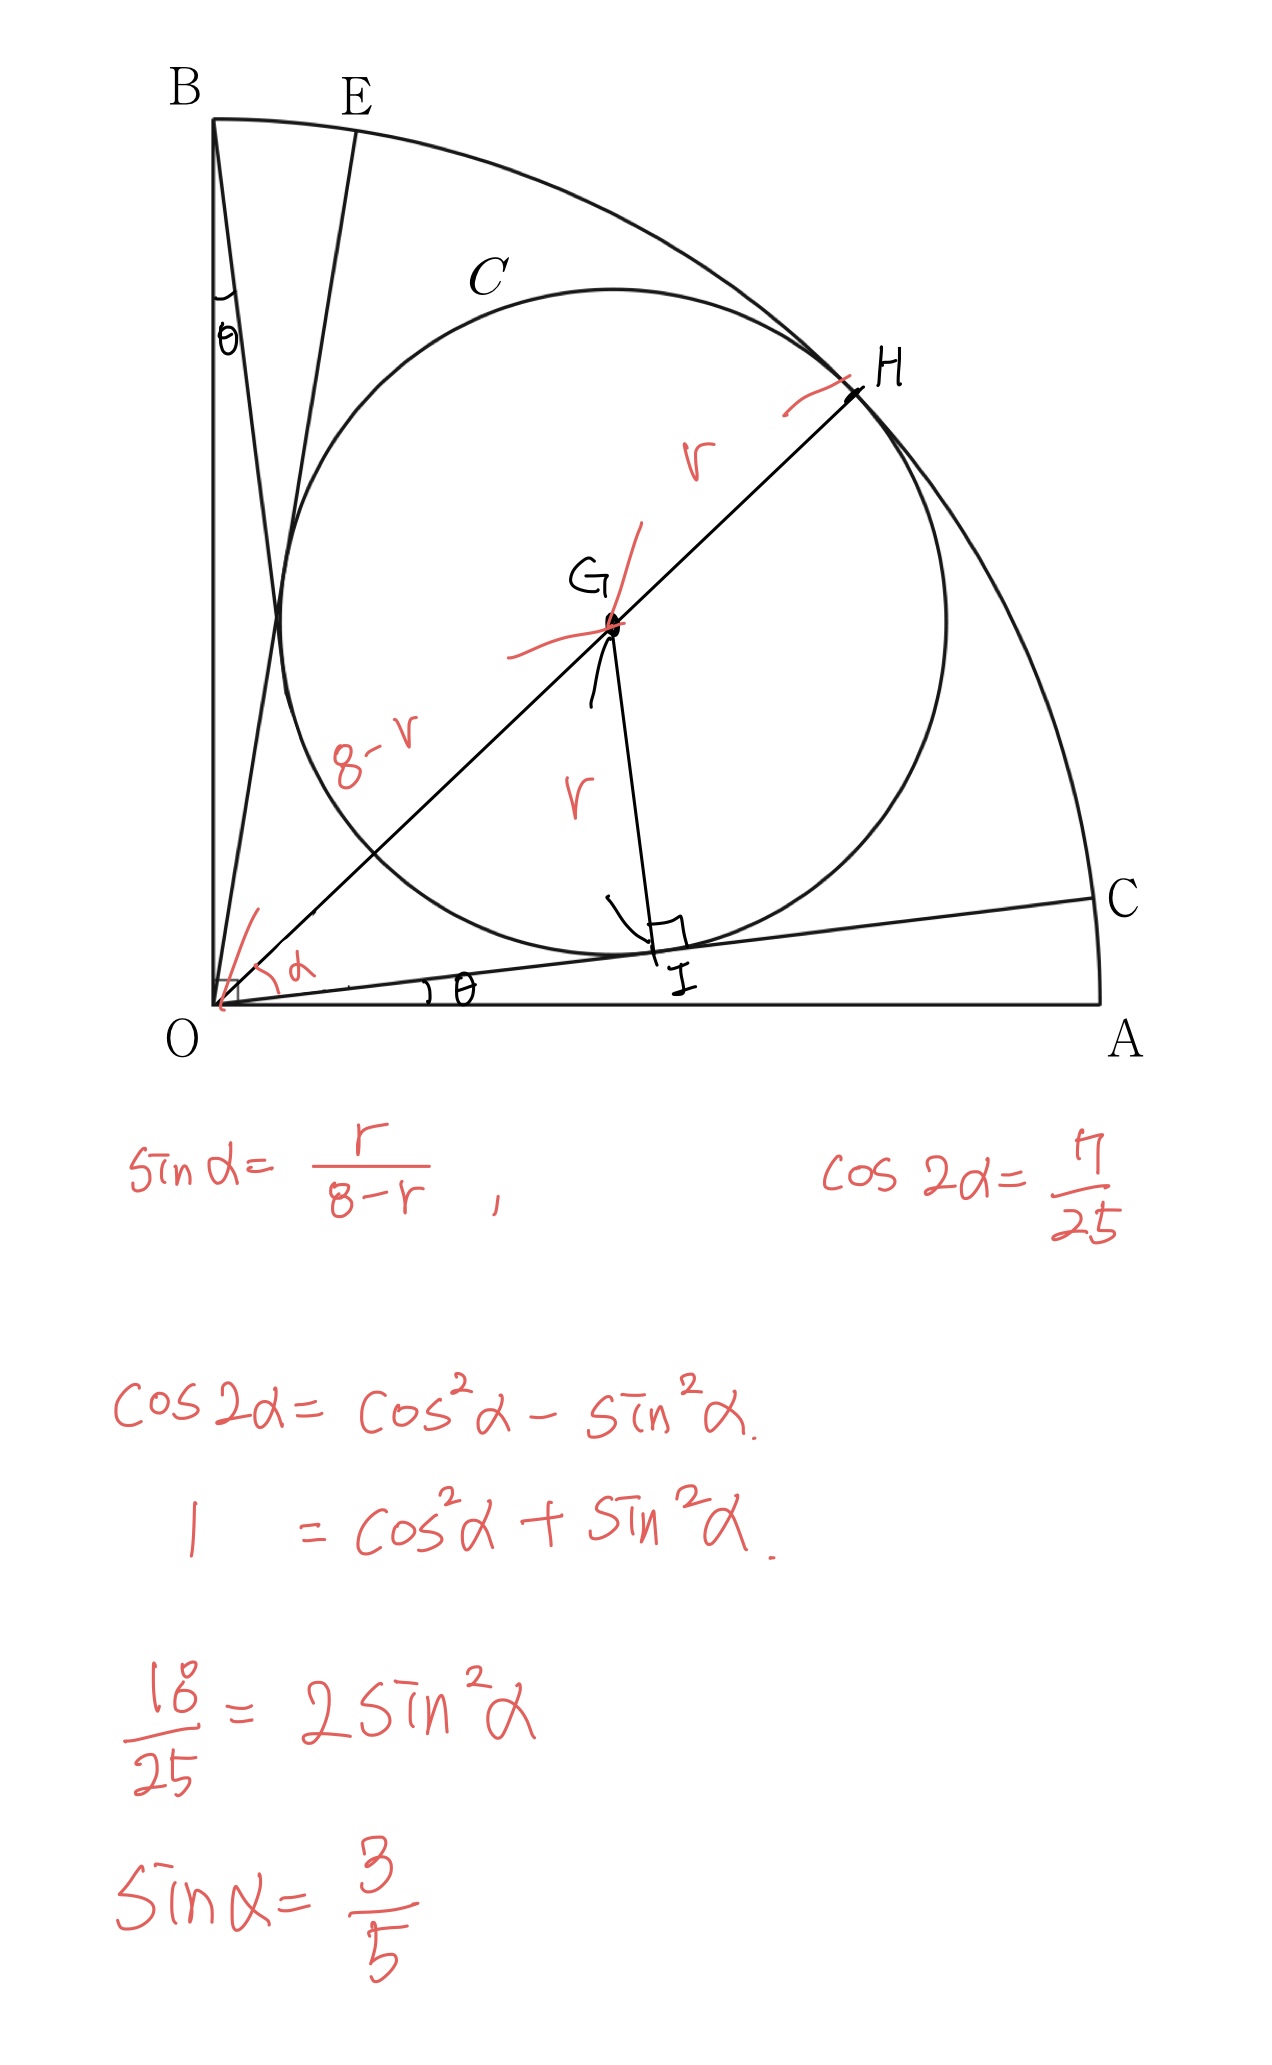 B
E
C
θ
H
r
G
8-r
r
C
α
θ
I
O
A
sin α = r/(8-r) ,
cos 2α = 7/25
cos 2α = cos²α - sin²α.
1 = cos²α + sin²α.
18/25 = 2 sin²α
sin α = 3/5